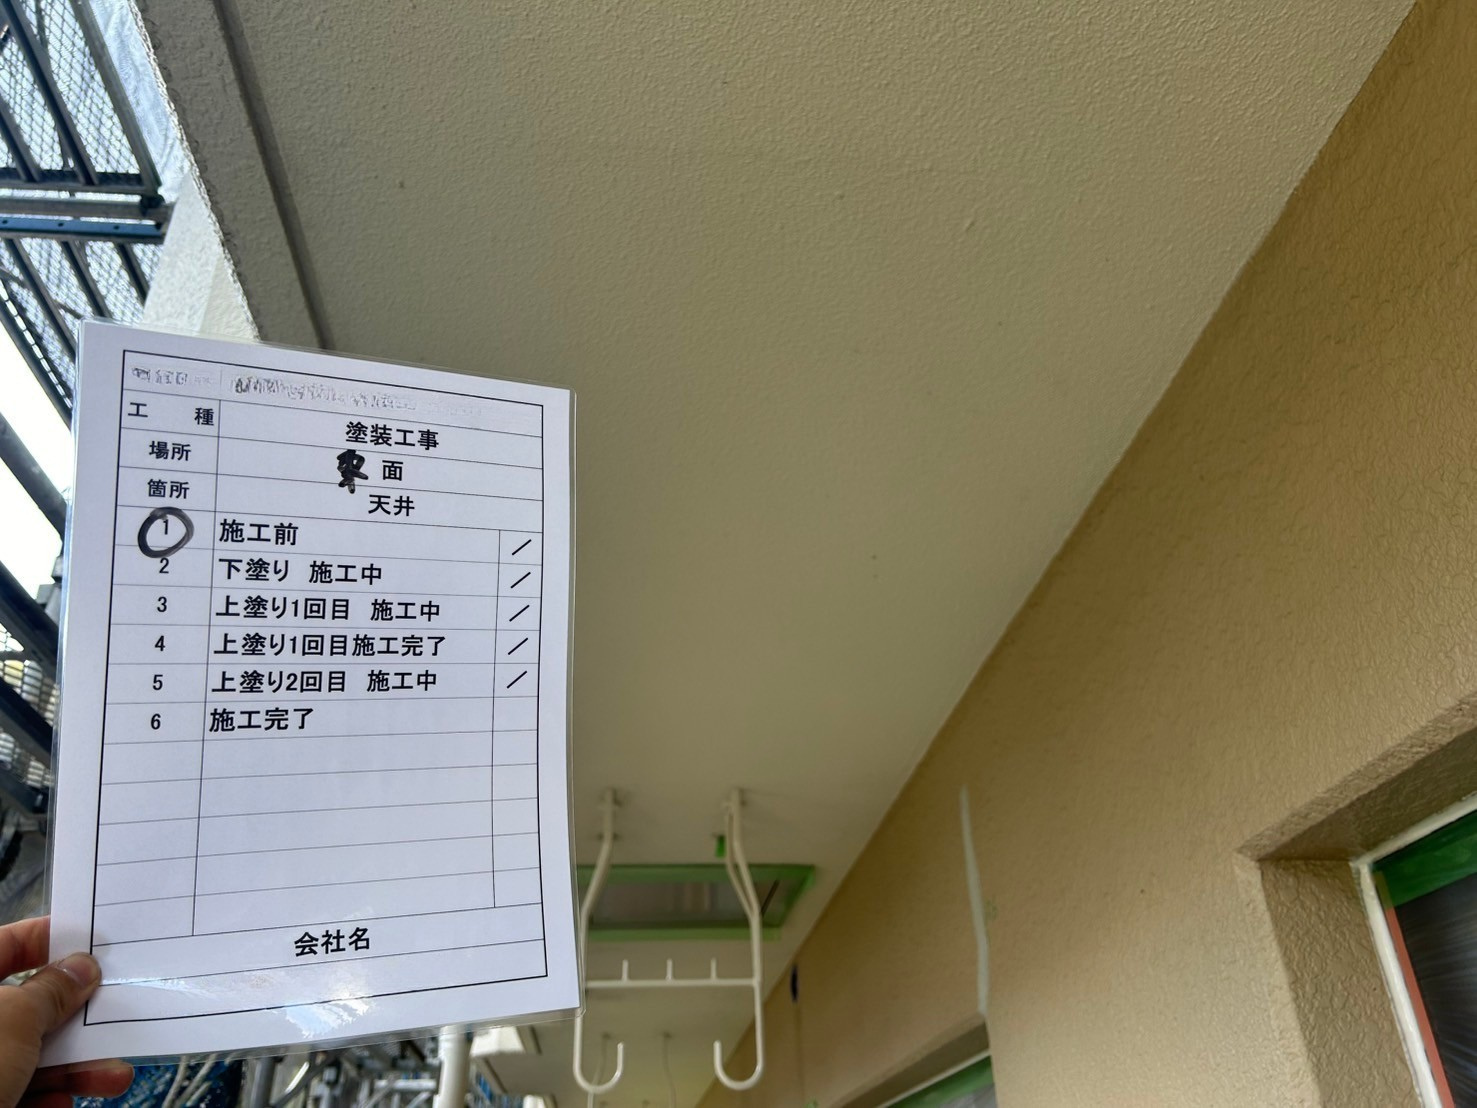 工 種 塗装工事
場所 面
箇所 天井
1 施工前 /
2 下塗り 施工中 /
3 上塗り1回目 施工中 /
4 上塗り1回目施工完了 /
5 上塗り2回目 施工中 /
6 施工完了
会社名